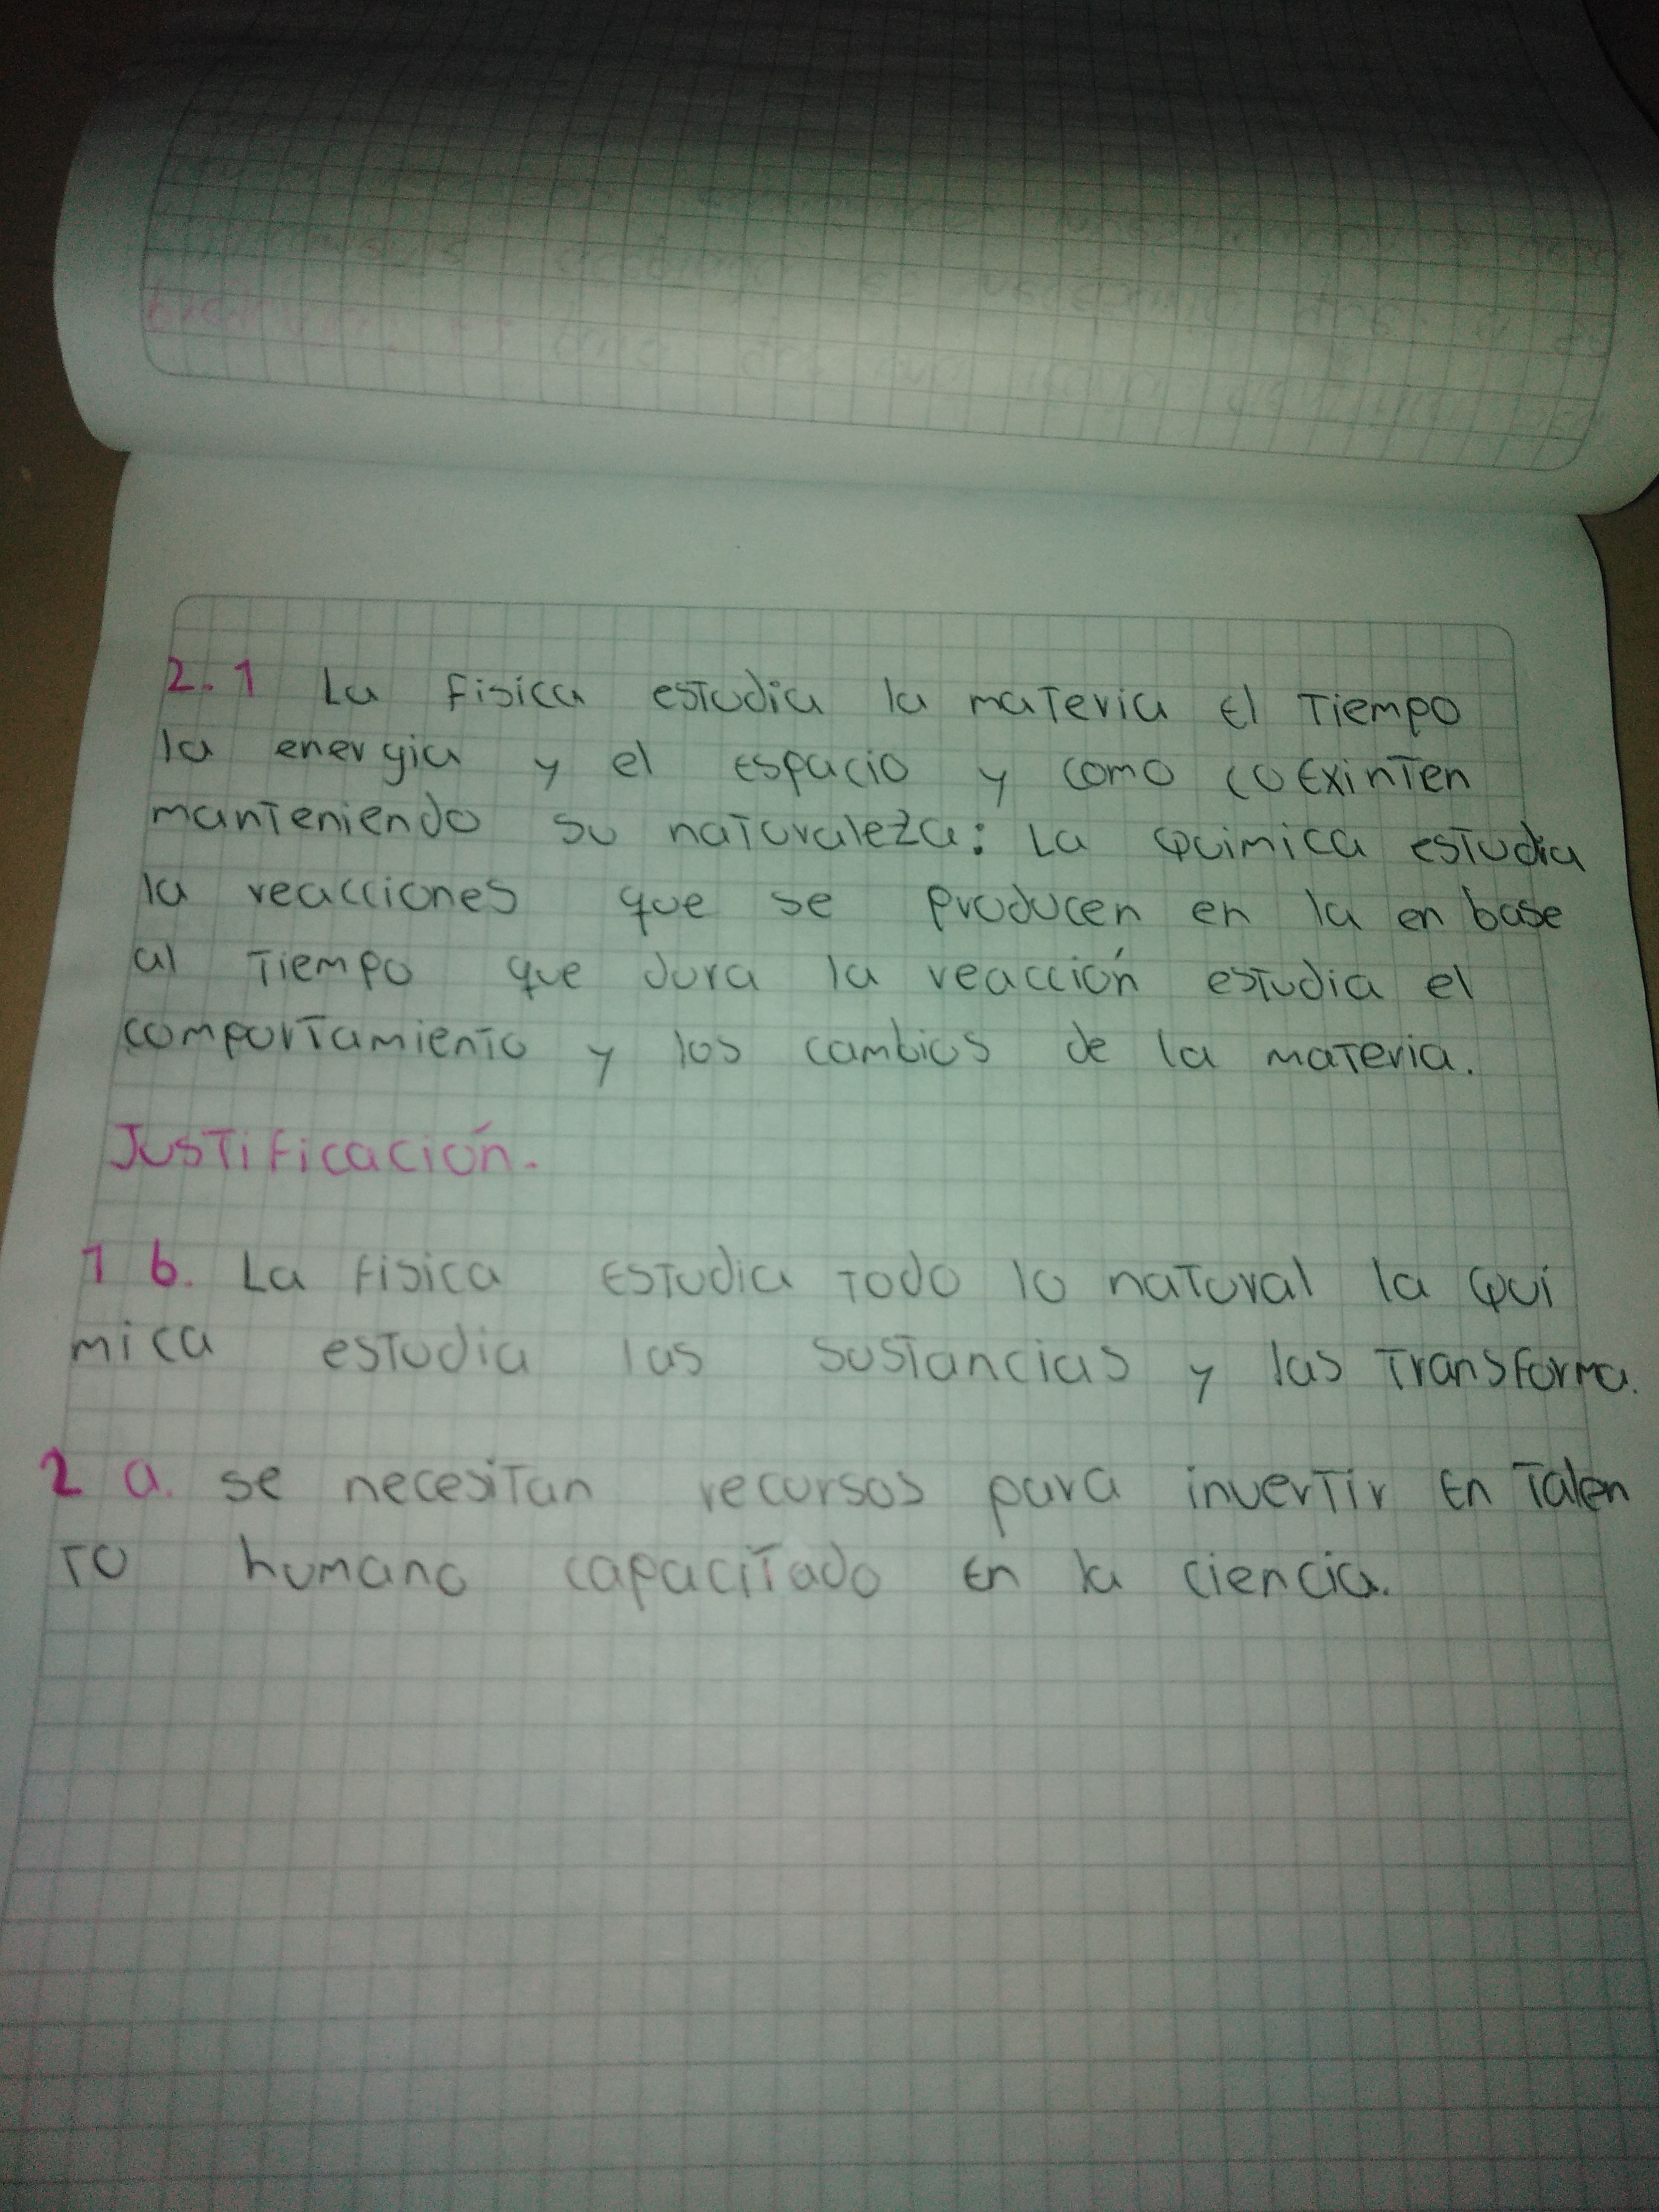 2.1 La Fisica estudia la materia El Tiempo
la energia y el Espacio y como coExinTen
manTeniendo su naturaleza: La Quimica esTudia
la reacciones que se Producen en la en base
al Tiempo que dura la reacción estudia el
comporTamienTo y los cambios de la maTeria.
JusTiFicación.
1 b. La Fisica EsTudia Todo lo naTural la Qui
mica esTudia las susTancias y las TransForma.
2 a. se necesiTan recursos para inverTir En Talen
To humano capaciTado En la ciencia.